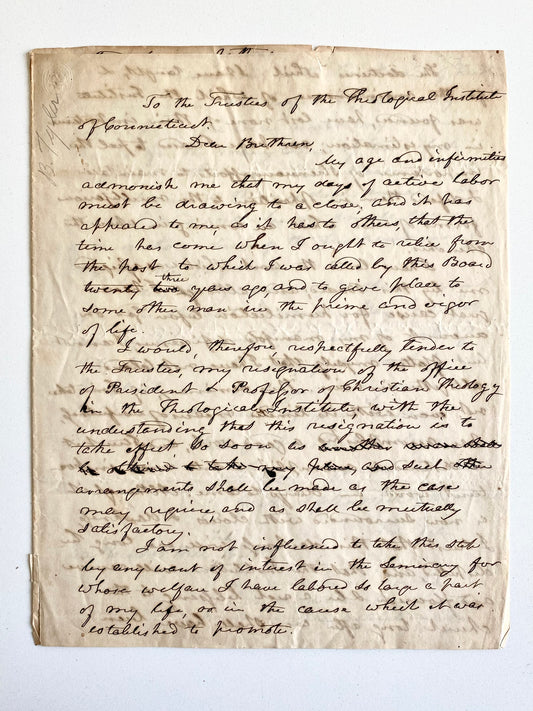 B. Tyler
To the Trustees of the Theological Institute
of Connecticut.
Dear Brethren,
My age and infirmities
admonish me that my days of active labor
must be drawing to a close, and it has
appeared to me, as it has to others, that the
time has come when I ought to retire from
the post to which I was called by this Board
twenty two three years ago, and to give place to
some other man in the prime and vigor
of life.
I would, therefore, respectfully tender to
the Trustees, my resignation of the office
of President & Professor of Christian Theology
in the Theological Institute, with the
understanding that this resignation is to
take effect so soon as another
to take my place, and such other
arrangements shall be made as the case
may require, and as shall be mutually
satisfactory.
I am not influenced to take this step
by any want of interest in the seminary for
whose welfare I have labored so large a part
of my life, or in the cause which it was
established to promote.